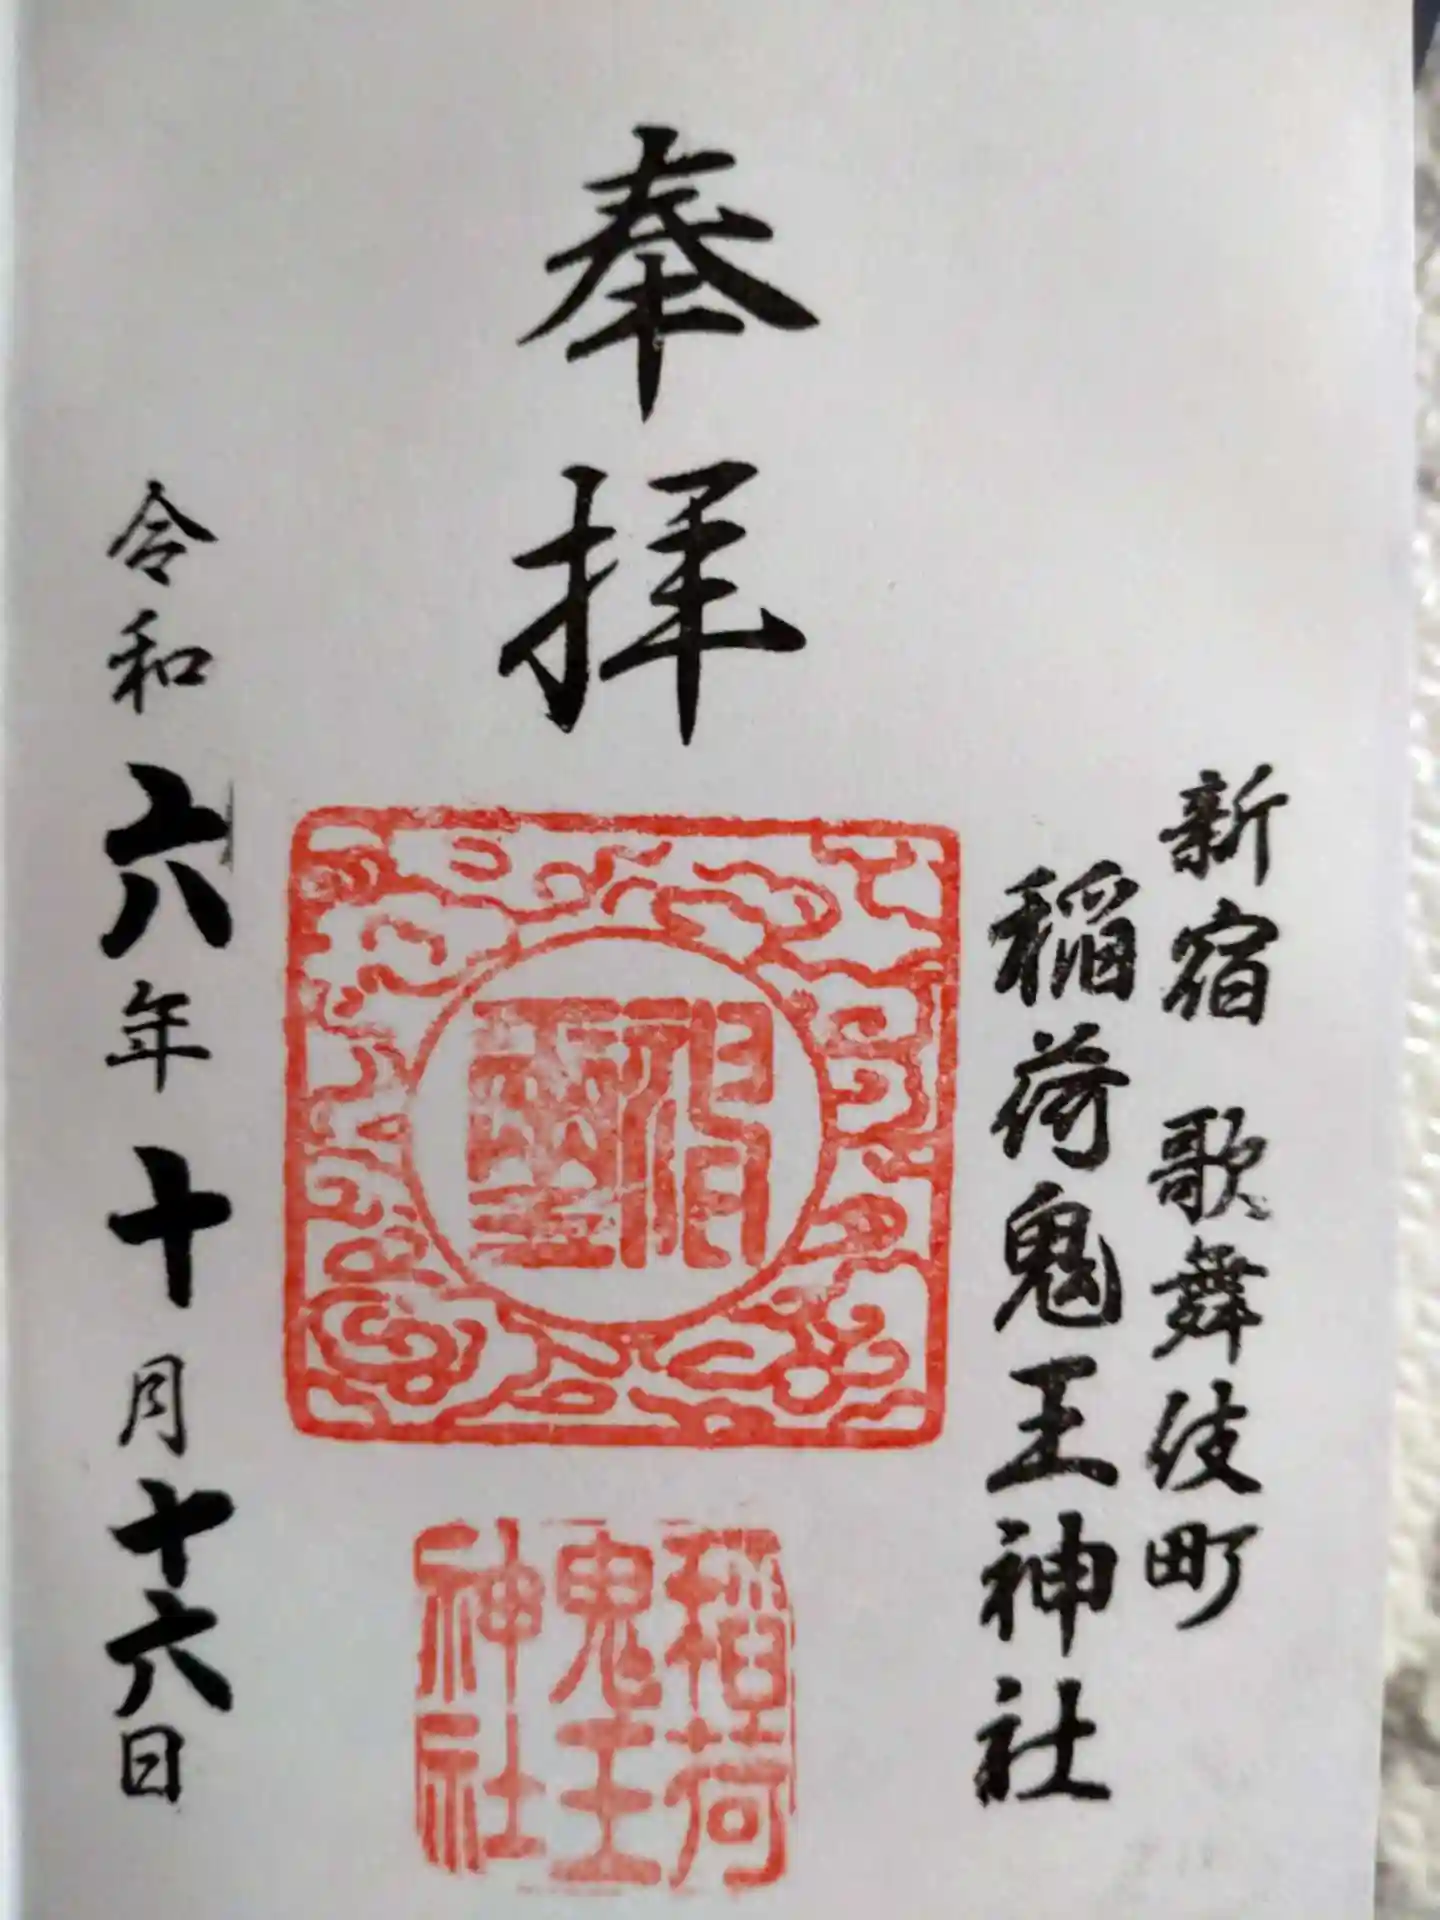 新宿 歌舞伎町
稲荷鬼王神社
奉拝
稲荷
鬼王
神社
令和六年十月十六日